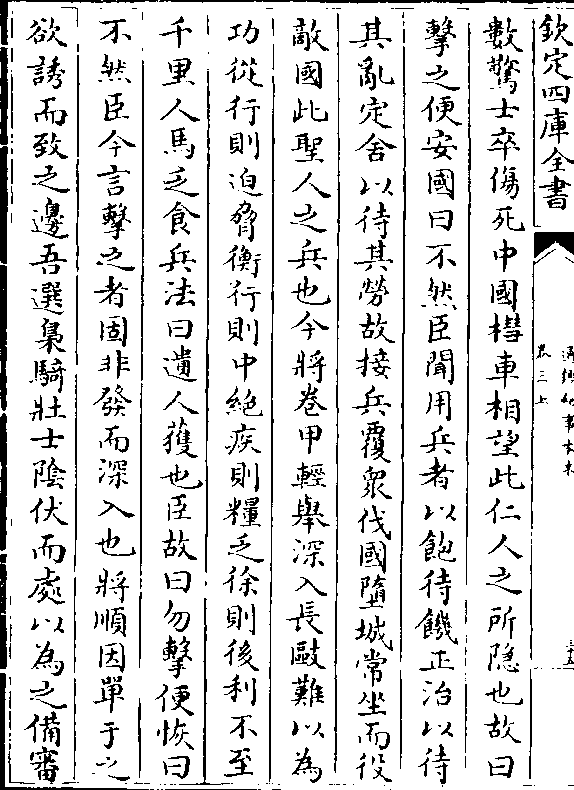 欽定四庫全書
卷三上
數驚士卒傷死中國槥車相望此仁人之所隐也故曰
擊之便安國曰不然臣聞用兵者以飽待饑正治以待
其亂定舍以待其勞故接兵覆衆伐國墮城常坐而役
敵國此聖人之兵也今將卷甲輕舉深入長敺難以為
功從行則迫脅衡行則中絶疾則糧乏徐則後利不至
千里人馬乏食兵法曰遺人獲也臣故曰勿擊便恢曰
不然臣今言擊之者固非發而深入也將順因單于之
欲誘而致之邊吾選梟騎壯士陰伏而處以為之備審